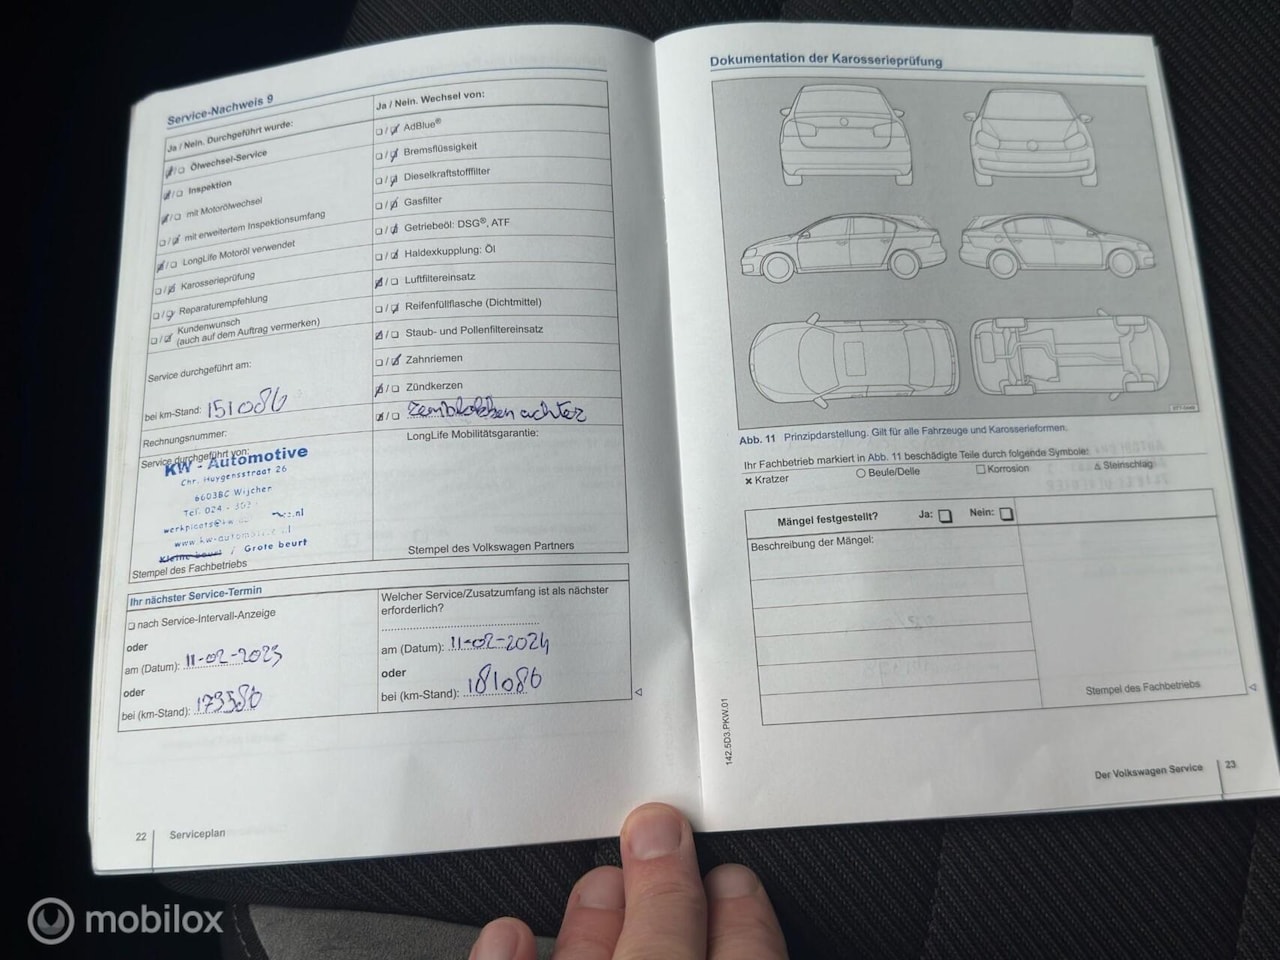 Service-Nachweis 9
Ja / Nein. Durchgeführt wurde:
Ölwechsel-Service
Inspektion
mit Motorölwechsel
mit erweitertem Inspektionsumfang
LongLife Motoröl verwendet
Karosserieprüfung
Reparaturempfehlung
Kundenwunsch
(auch auf dem Auftrag vermerken)
Service durchgeführt am:
bei km-Stand: 151086
Rechnungsnummer:
Service durchgeführt von:
KW - Automotive
Chr. Huygensstraat 26
6603BC Wijchen
Tel. 024 -
Kleine beurt / Grote beurt
Stempel des Fachbetriebs
Ja / Nein. Wechsel von:
AdBlue®
Bremsflüssigkeit
Dieselkraftstofffilter
Gasfilter
Getriebeöl: DSG®, ATF
Haldexkupplung: Öl
Luftfiltereinsatz
Reifenfüllflasche (Dichtmittel)
Staub- und Pollenfiltereinsatz
Zahnriemen
Zündkerzen
Remblokken achter
LongLife Mobilitätsgarantie:
Stempel des Volkswagen Partners
Ihr nächster Service-Termin
nach Service-Intervall-Anzeige
oder
am (Datum): 11-02-2023
oder
bei (km-Stand): 173586
Welcher Service/Zusatzumfang ist als nächster
erforderlich?
am (Datum): 11-02-2024
oder
bei (km-Stand): 181086
22 Serviceplan
Dokumentation der Karosserieprüfung
Abb. 11 Prinzipdarstellung. Gilt für alle Fahrzeuge und Karosserieformen.
Ihr Fachbetrieb markiert in Abb. 11 beschädigte Teile durch folgende Symbole:
Kratzer Beule/Delle Korrosion Steinschlag
Mängel festgestellt? Ja: Nein:
Beschreibung der Mängel:
Stempel des Fachbetriebs
142.5D3.PKW.01
Der Volkswagen Service 23
mobilox